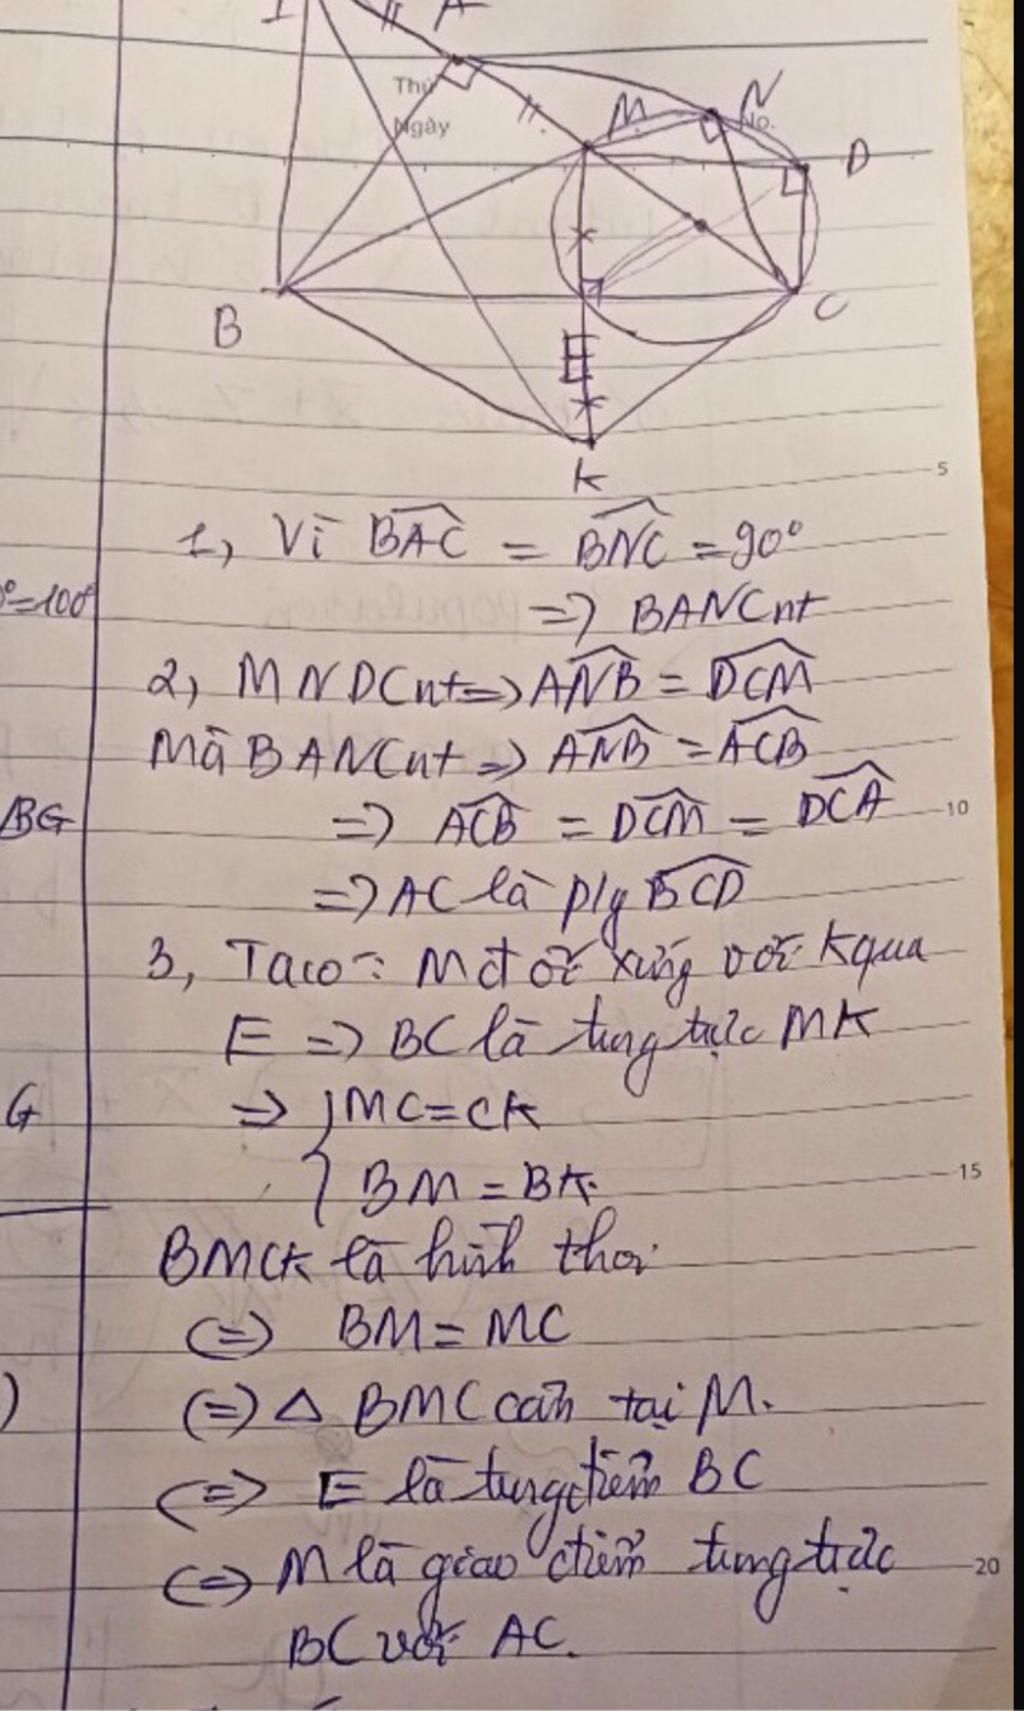 I
A
Thứ
Ngày
M
N
No.
D
B
C
E
K
5
1, Vì BAC = BNC = 90°
°=100°
=> BANC nt
2, MNDC nt => ANB = DCM
Mà BANC nt => ANB = ACB
ABG
=> ACB = DCM = DCA
10
=> AC là p/g BCD
3, Ta có: M đối xứng với K qua
E => BC là trung trực MK
G
=> { MC = CK
BM = BK.
15
BMCK là hình thoi
<=> BM = MC
)
<=> △ BMC cân tại M.
<=> E là trung điểm BC
<=> M là giao điểm trung trực
20
BC với AC.